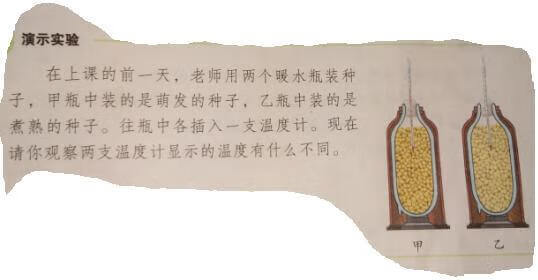 演示实验
在上课的前一天，老师用两个暖水瓶装种
子，甲瓶中装的是萌发的种子，乙瓶中装的是
煮熟的种子。往瓶中各插入一支温度计。现在
请你观察两支温度计显示的温度有什么不同。
甲 乙